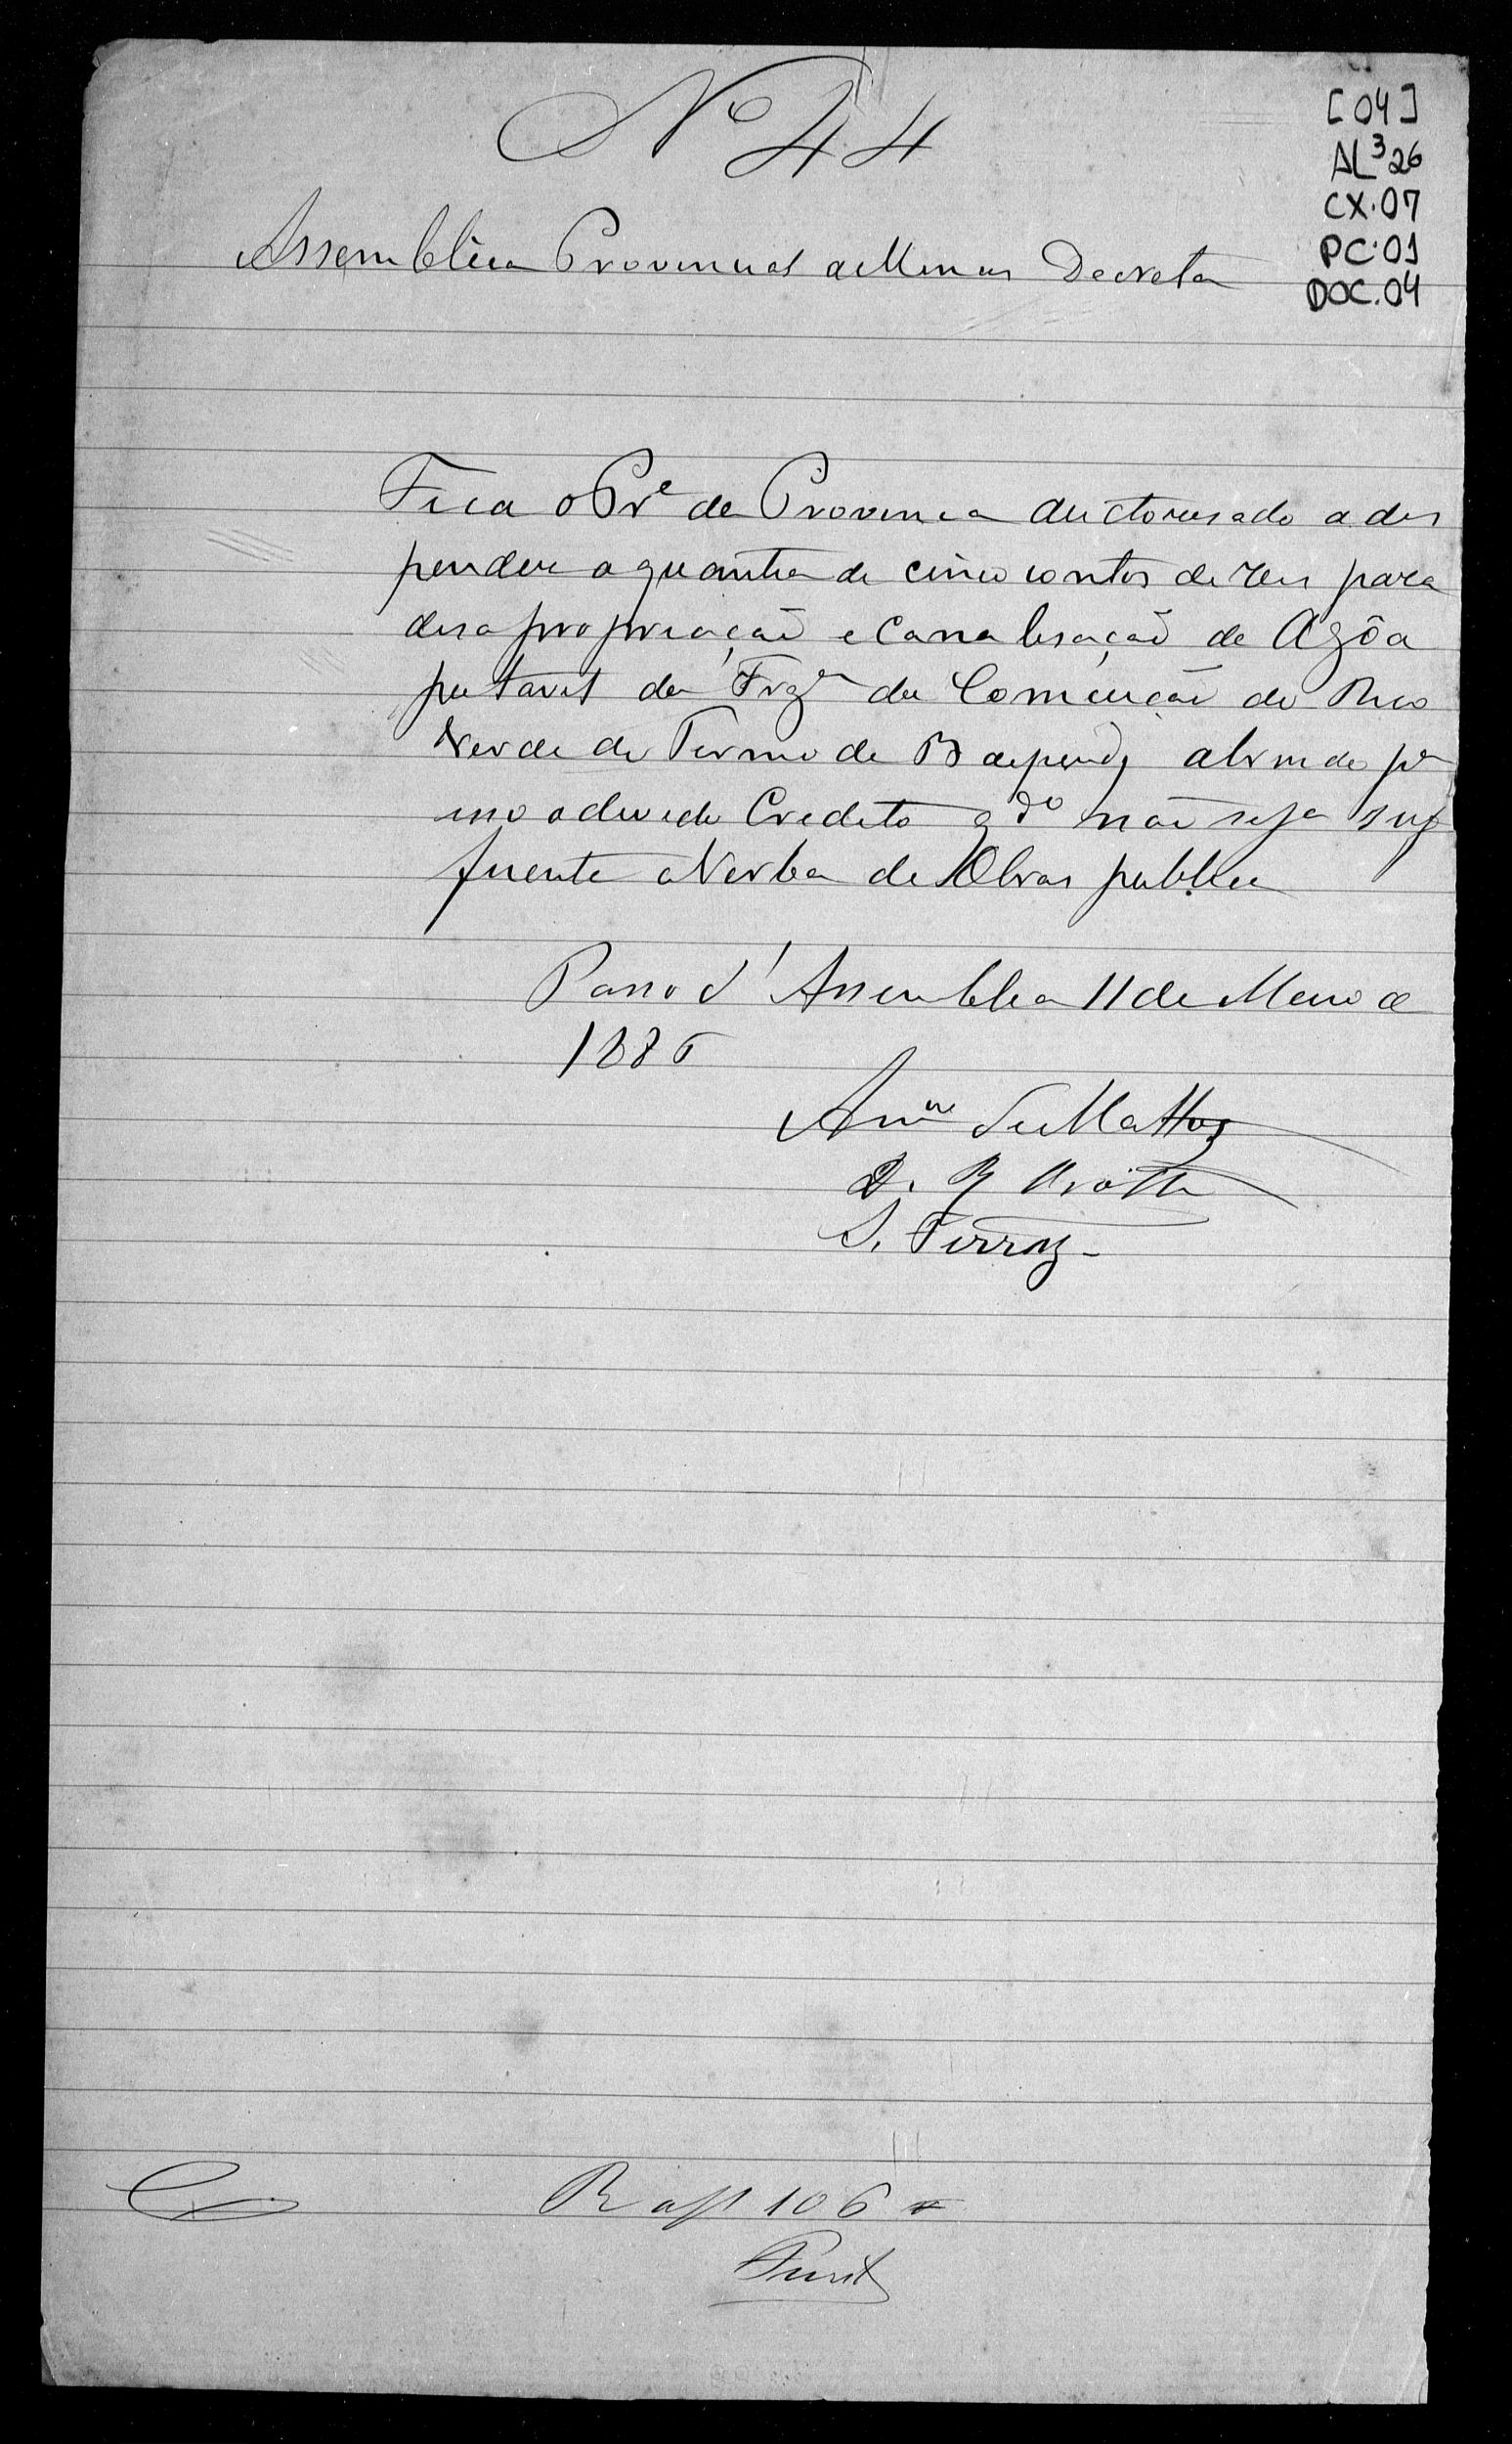 Nº 44
[04]
AL³ 26
CX.07
PC.01
DOC.04
Assemblea Provincial de Minas Decreta
Fica o Prᵉ da Provincia auctorisado a des
pender a quantia de cinco contos de reis para
desapropriação e Canalisação de Agôa
putavel da Frgᵃ da Conceição do Rio
Verde do Termo de Baependy abrindo pᵃ
isso o devido Credito qᵈᵒ não seja suf
ficiente a Verba de Obras publica
Passo d' Assemblea 11 de Maio de
1886
de Mattos
D. R
S. Ferraz
R af 106